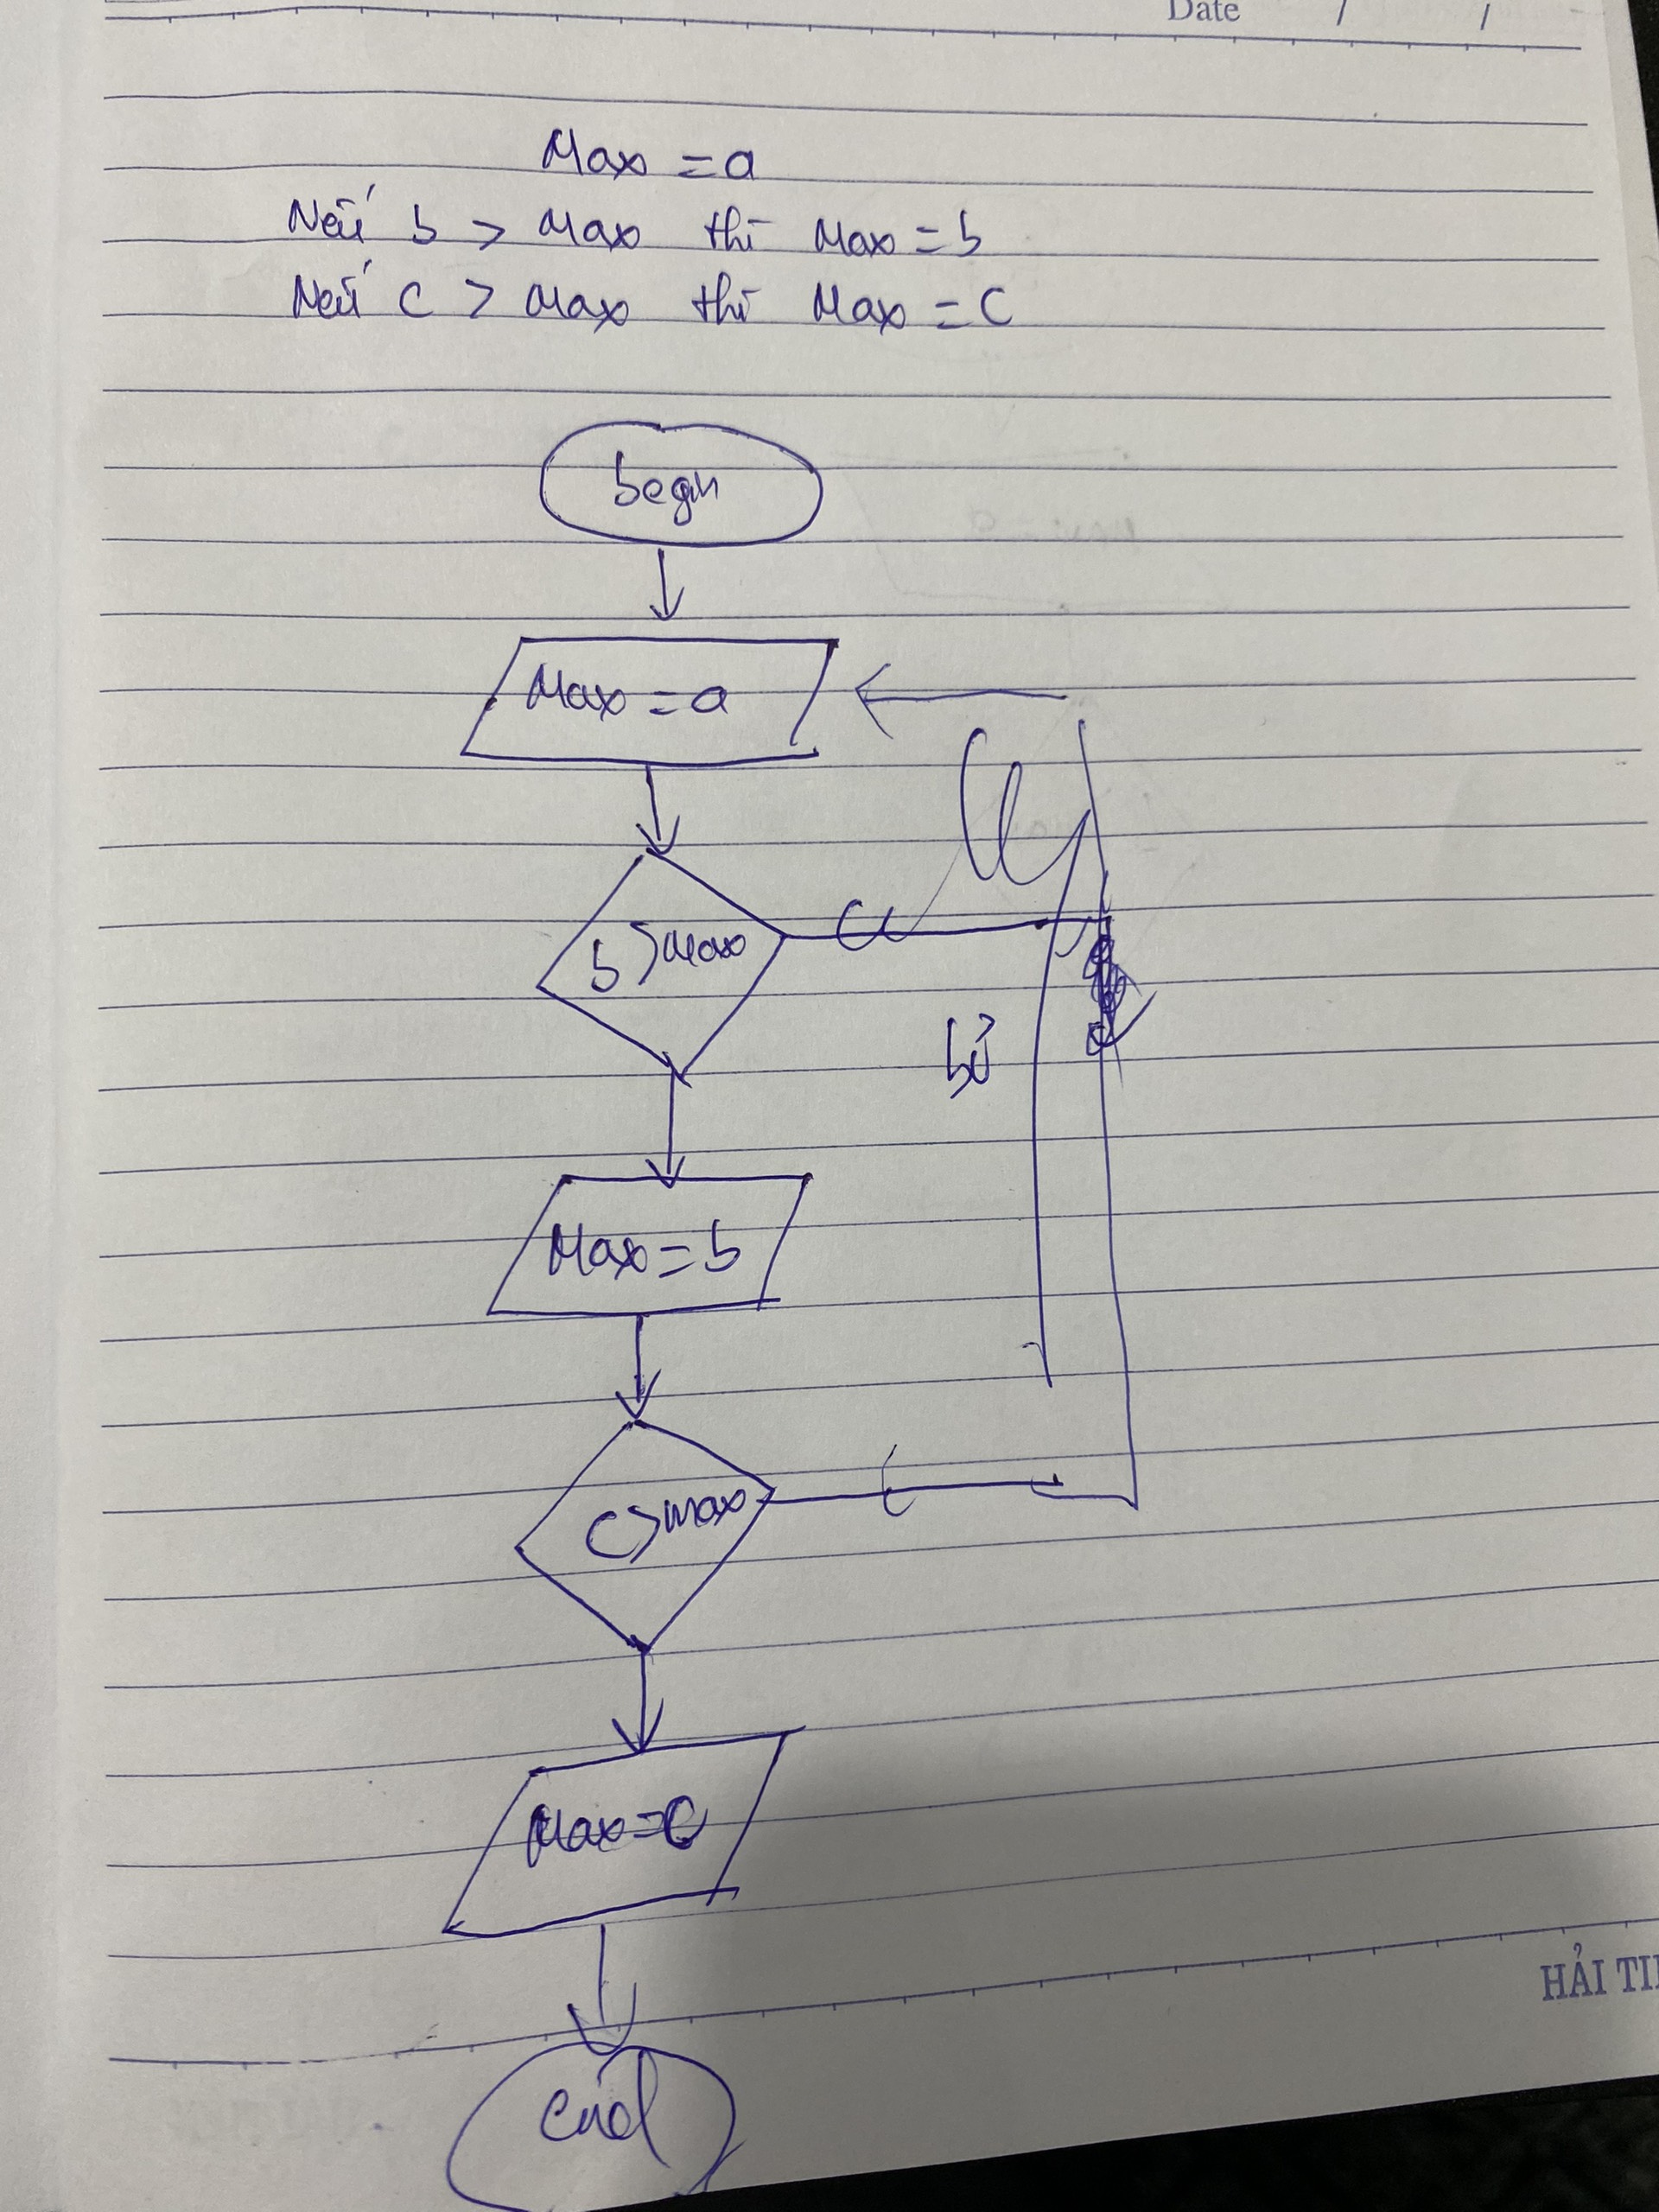 Date / /
Max = a
Nếu b > Max thì Max = b
Nếu c > Max thì Max = c
begin
Max = a
b > Max
bỏ
Max = b
c > max
Max = c
HẢI TI
end